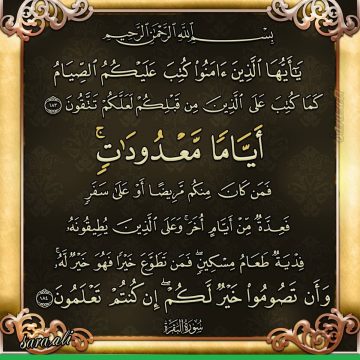 بِسْمِ ٱللَّهِ ٱلرَّحْمَٰنِ ٱلرَّحِيمِ
يَٰٓأَيُّهَا ٱلَّذِينَ ءَامَنُوا۟ كُتِبَ عَلَيْكُمُ ٱلصِّيَامُ
كَمَا كُتِبَ عَلَى ٱلَّذِينَ مِن قَبْلِكُمْ لَعَلَّكُمْ تَتَّقُونَ ١٨٣
أَيَّامًا مَّعْدُودَٰتٍ ۚ
فَمَن كَانَ مِنكُم مَّرِيضًا أَوْ عَلَىٰ سَفَرٍ
فَعِدَّةٌ مِّنْ أَيَّامٍ أُخَرَ ۚ وَعَلَى ٱلَّذِينَ يُطِيقُونَهُۥ
فِدْيَةٌ طَعَامُ مِسْكِينٍ ۖ فَمَن تَطَوَّعَ خَيْرًا فَهُوَ خَيْرٌ لَّهُۥ ۚ
وَأَن تَصُومُوا۟ خَيْرٌ لَّكُمْ ۖ إِن كُنتُمْ تَعْلَمُونَ ١٨٤
سُورَةُ البَقَرَة
sara.ali